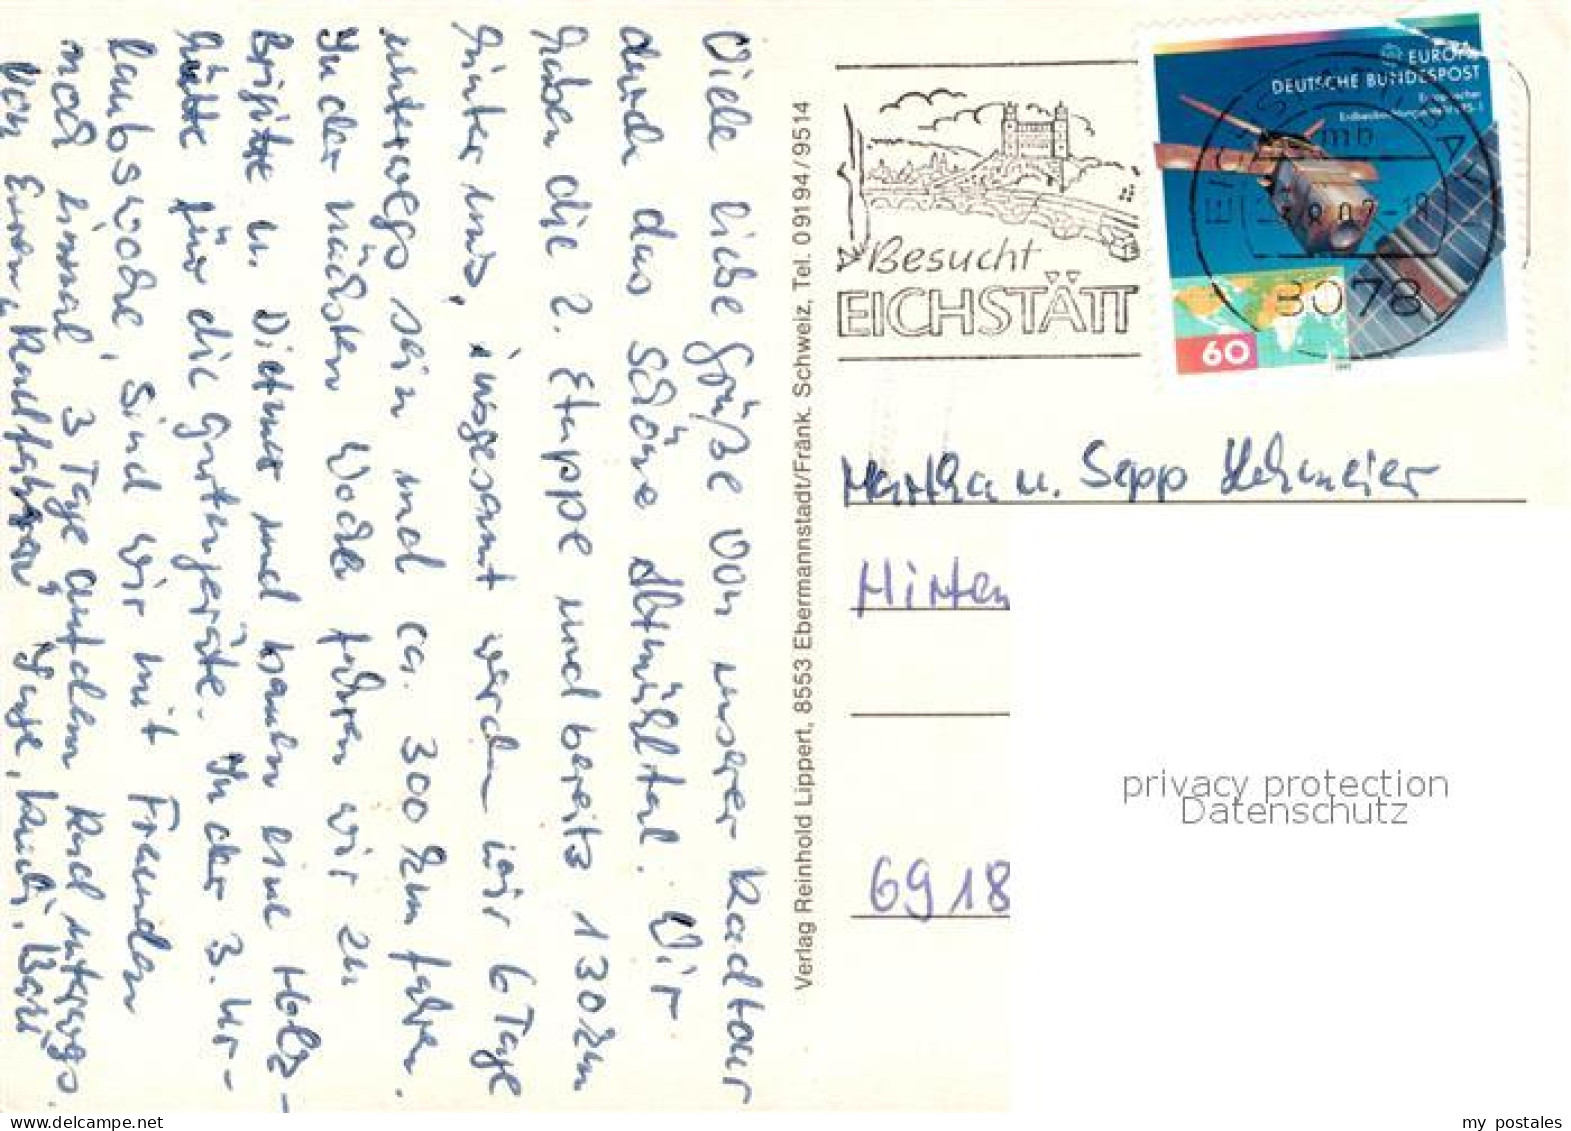 Viele liebe Grüße von unserer Radtour
durch das schöne Altmühltal. Wir
haben die 2. Etappe und bereits 130 km
hinter uns, insgesamt werden wir 6 Tage
unterwegs sein und ca. 300 km fahren.
In der nächsten Woche fahren wir zu
Brigitte u. Dietmar und bauen eine Holz-
hütte für die Gartengeräte. In der 3. Ur-
laubswoche, sind wir mit Freunden
noch einmal 3 Tage auf dem Rad unterwegs.
Von Euren "Radfahrern"
Verlag Reinhold Lippert, 8553 Ebermannstadt/Fränk. Schweiz, Tel. 09194/9514
Besucht
EICHSTÄTT
EUROPA
DEUTSCHE BUNDESPOST
Europäischer
60
mb
8078
Martha u. Sepp Lehmeier
Hirten
6918
privacy protection
Datenschutz
www.delcampe.net
my_postales